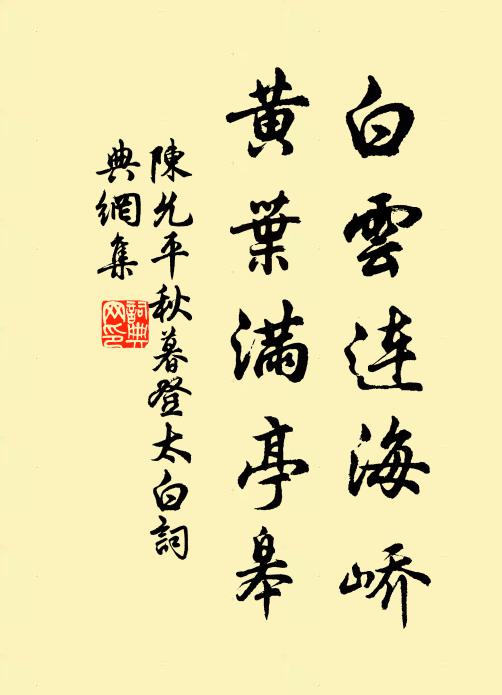 白雲连海峤
黄葉滿亭皋
陳允平秋暮登太白詞
典網集
詞典网印